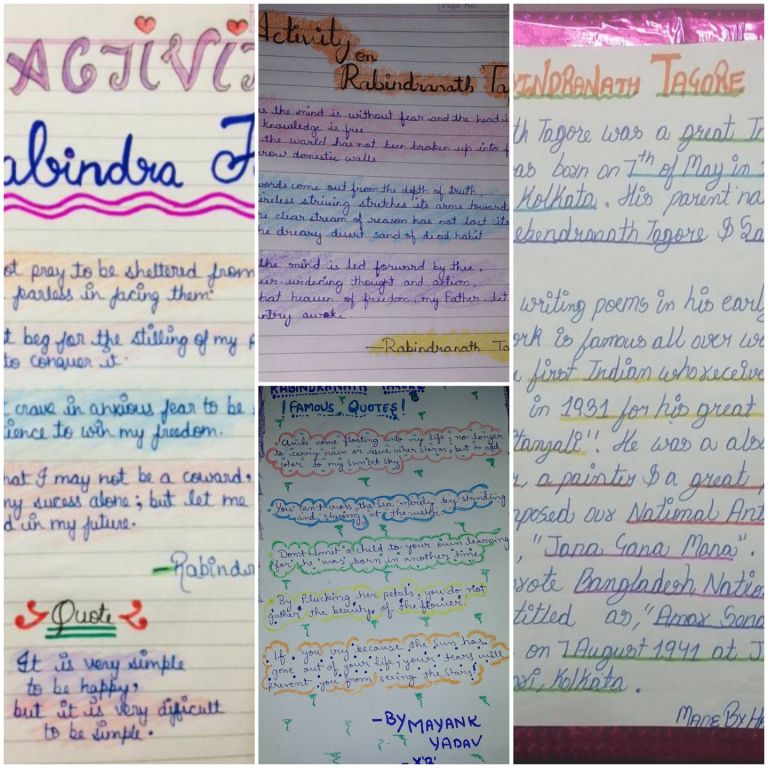 ACTIVI
abindra
ot pray to be sheltered from
parless in facing them.
t beg for the stilling of my p
to conquer it.
crave in anxious fear to be
ience to win my freedom.
hat I may not be a coward,
ny sucess alone; but let me
d in my future.
-Rabindr
Quote
It is very simple
to be happy,
but it is very dificult
to be simple.
Page No.
Activity on
Rabindranath Ta
is the mind is without fear and the head i
knowledge is free.
the world has not been broken up into f
row domestic walls
words come out from the depth of truth,
ireless striving stretches its arms toward
e clear stream of reason has not lost its
he dreary desert sand of dead habit
the mind is led forward by thee,
ever widening thought and action,
hat heaven of freedom, my Father, let
ntry awake
-Rabindranath Ta
RABINDRANATH TAGORE
! FAMOUS QUOTES !
come floating into my life; no longer
to carry rain or usher storm, but to add
color to my sunset sky
You can't cross the sea merely by standing
and staring at the water
Don't limit a child to your own learning
for he was born in another time
By Plucking her petals, you do not
gather the beauty of the flower
If you cry because the Sun has
gone out of your life, your tears will
prevent you from seeing the stars!
-BY MAYANK
YADAV
INDRANATH TAGORE
th Tagore was a great I
as born on 7th of May in
Kolkata. His parent na
ebendranath Tagore $ Sa
writing poems in his earl
ork is famous all over wo
first Indian who receive
in 1931 for his great
itanjali". He was a also
r, a painter $ a great
mposed our National Ant
, "Jana Gana Mana".
rote Bangladesh, Natio
titled as, "Amar Sona
on 7 August 1941 at J
Kolkata.
MADE BY H